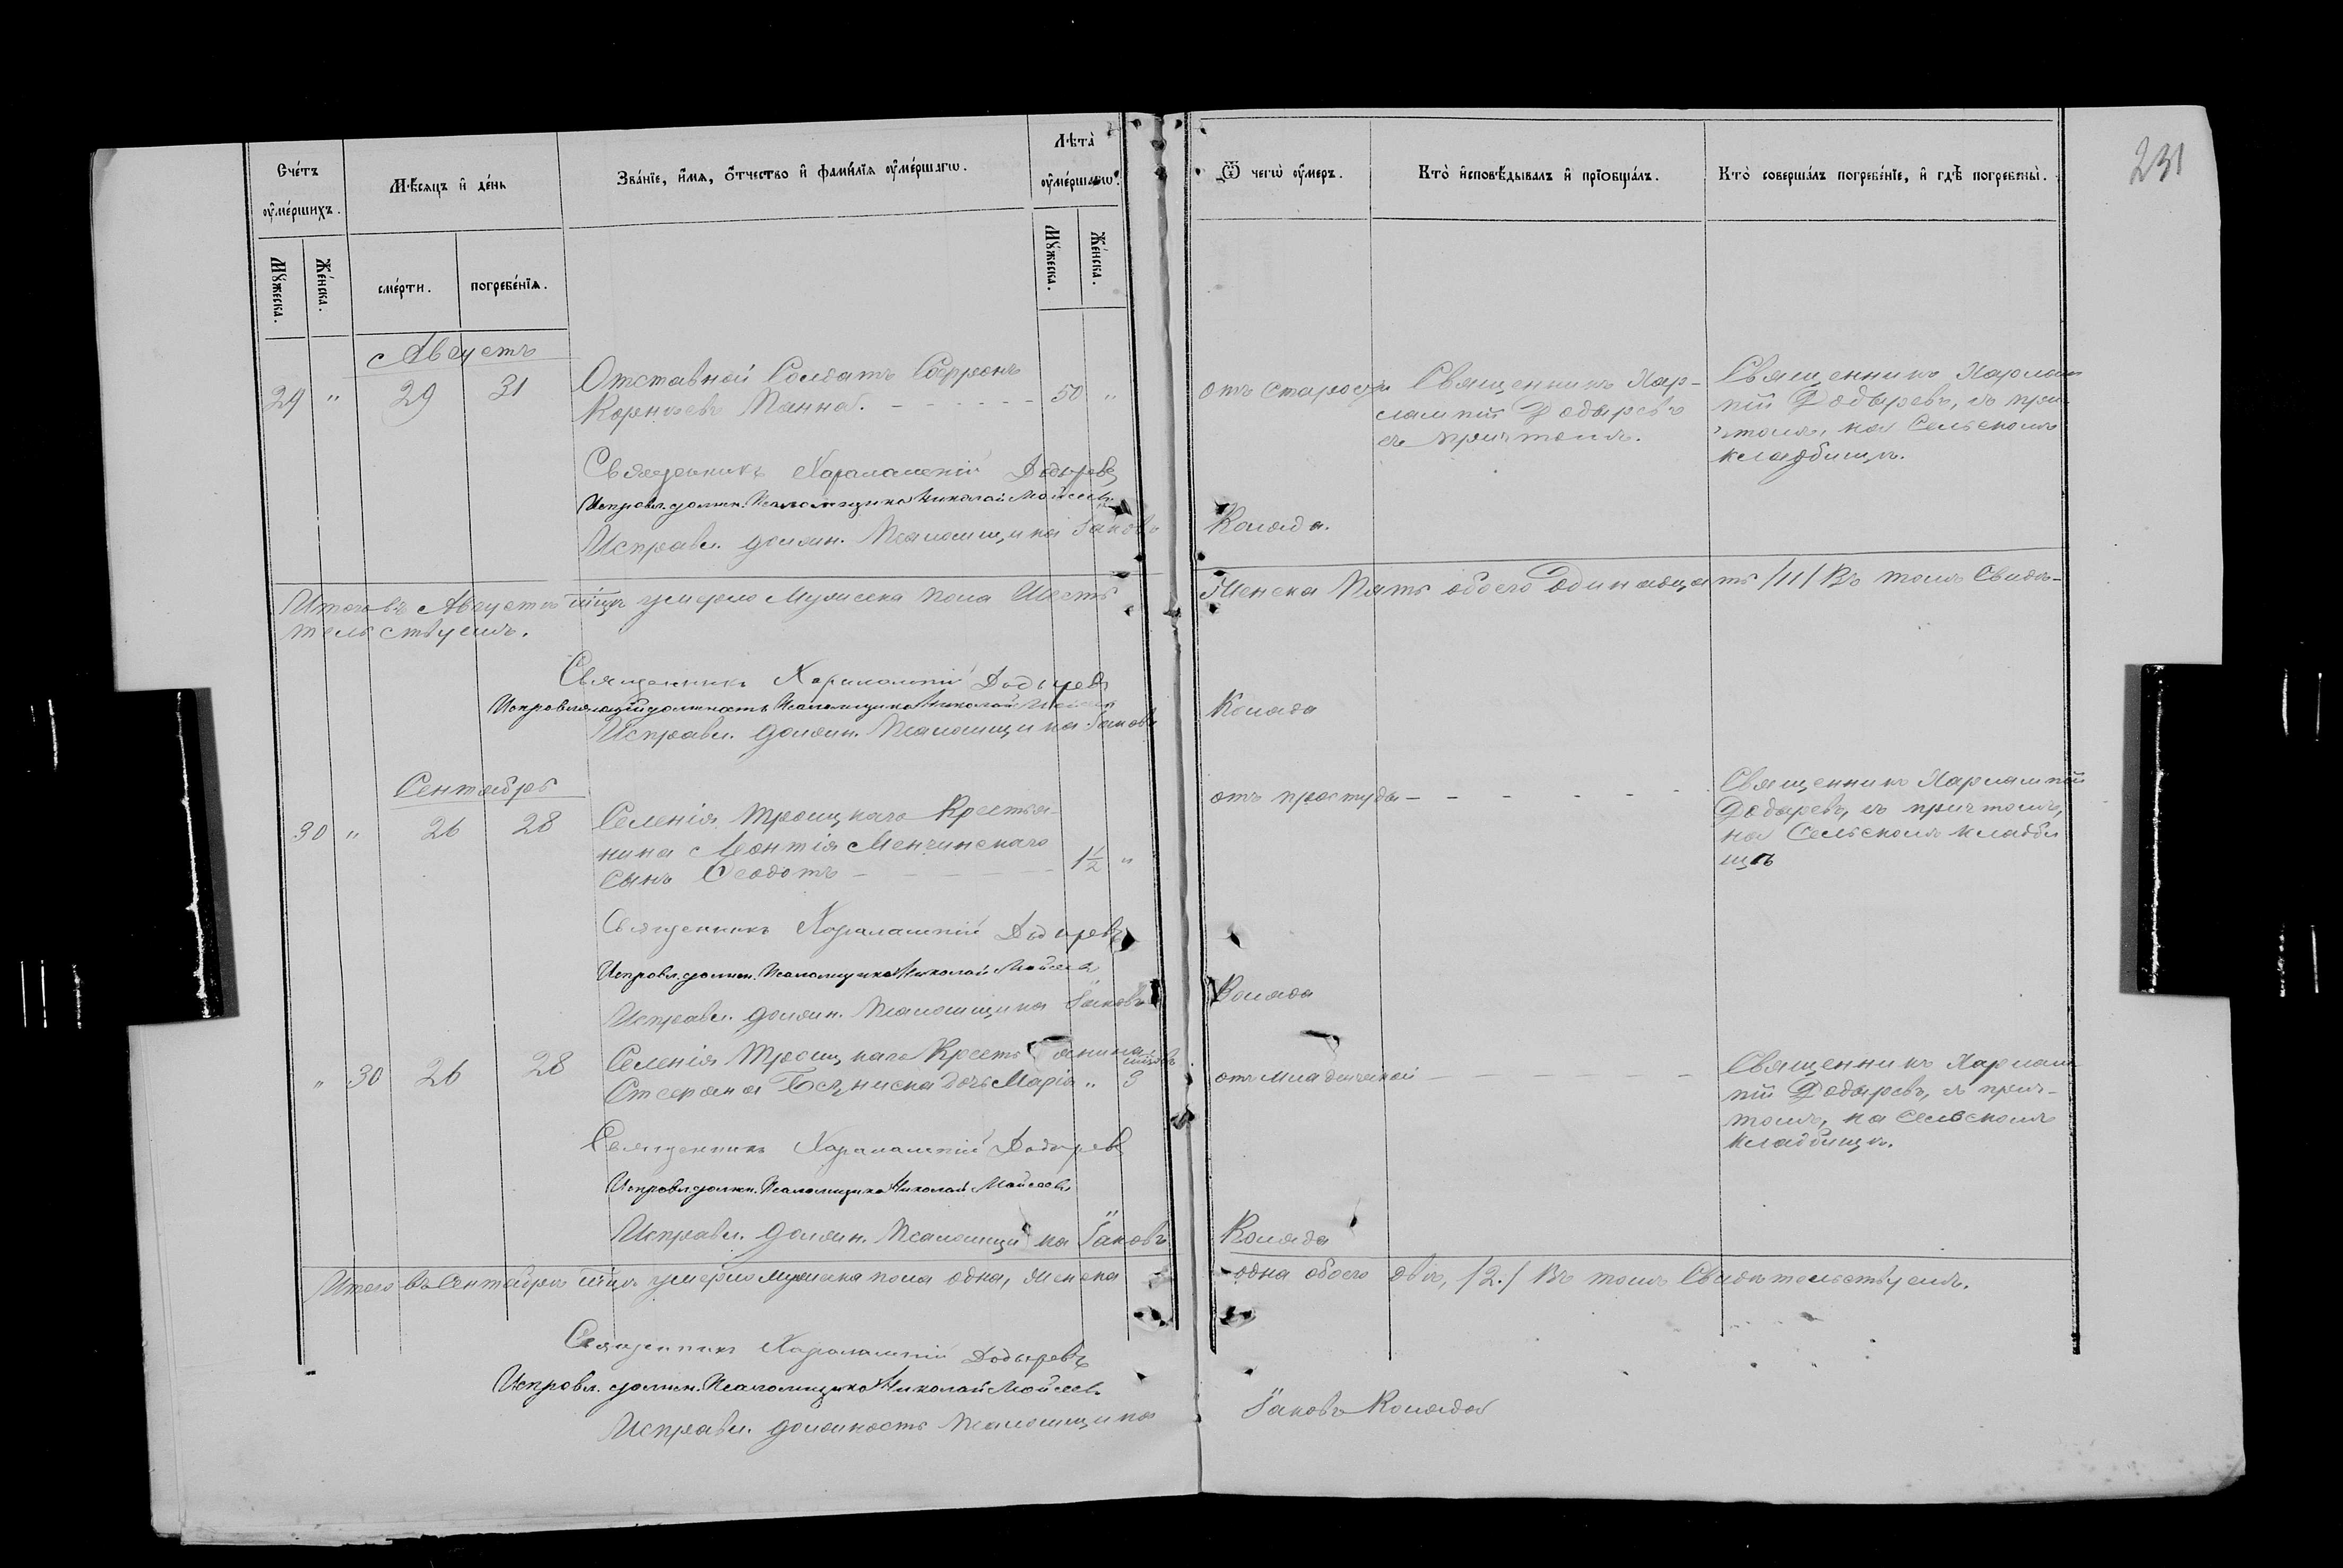 231
Счетъ умершихъ.
Мѣсяцъ и день
Званіе, имя, отчество и фамилія умершагω.
Лѣта умершагω.
Ѿ чегω умеръ.
Кто исповѣдывалъ и пріобщалъ.
Кто совершалъ погребеніе, и гдѣ погребены.
Мужеска.
Женска.
смерти.
погребенія.
Мужеска.
Женска.
Августъ
29 " 29 31
Отставной Солдатъ Софронъ
Корнѣевъ Панна. 50 "
отъ старости
Священникъ Хар-
лампій Додыревъ
съ причтомъ.
Священникъ Харлам
пій Додыревъ, съ при
чтомъ, на Сельскомъ
кладбищѣ.
Священникъ Харалампій Додыревъ
Исправл. должн. Псаломщика Николай Мойсеевъ
Исправл. должн. Псаломщика Іаковъ Коляда.
Итого въ Августѣ м͠цѣ умерло Мужеска пола Шесть Женска Пять обоего Одинадцать /11/ Въ томъ Свидѣ-
тельствуемъ.
Священникъ Харалампій Додыревъ
Исправляющій должность Псаломщика Николай Мойсеевъ
Исправл. должн. Псаломщика Іаковъ Коляда
Сентябрь
30 " 26 28
Селенія Троицкаго Крестья-
нина Леонтія Менчинскаго
сынъ Ѳеодотъ 1½ "
отъ простуды
Священникъ Харлампій
Додыревъ, съ причтомъ,
на Сельскомъ кладби
щѣ
Священникъ Харалампій Додыревъ
Исправл. должн. Псаломщика Николай Мойсеевъ
Исправл. должн. Псаломщика Іаковъ Коляда
" 30 26 28
Селенія Троицкаго Крестьянина
Стефана дочь Марія " 3
отъ младенческой
Священникъ Харлам
пій Додыревъ, съ прич-
томъ, на Сельскомъ
кладбищѣ.
Священникъ Харалампій Додыревъ
Исправл. должн. Псаломщика Николай Мойсеевъ
Исправл. должн. Псаломщика Іаковъ Коляда
Итого въ Сентябрѣ м͠цѣ умерло мужеска пола одна, женска одна обоего двѣ, /2./ Въ томъ Свидѣтельствуемъ.
Священникъ Харалампій Додыревъ
Исправл. должн. Псаломщика Николай Мойсеевъ
Исправл. должность Псаломщика Іаковъ Коляда